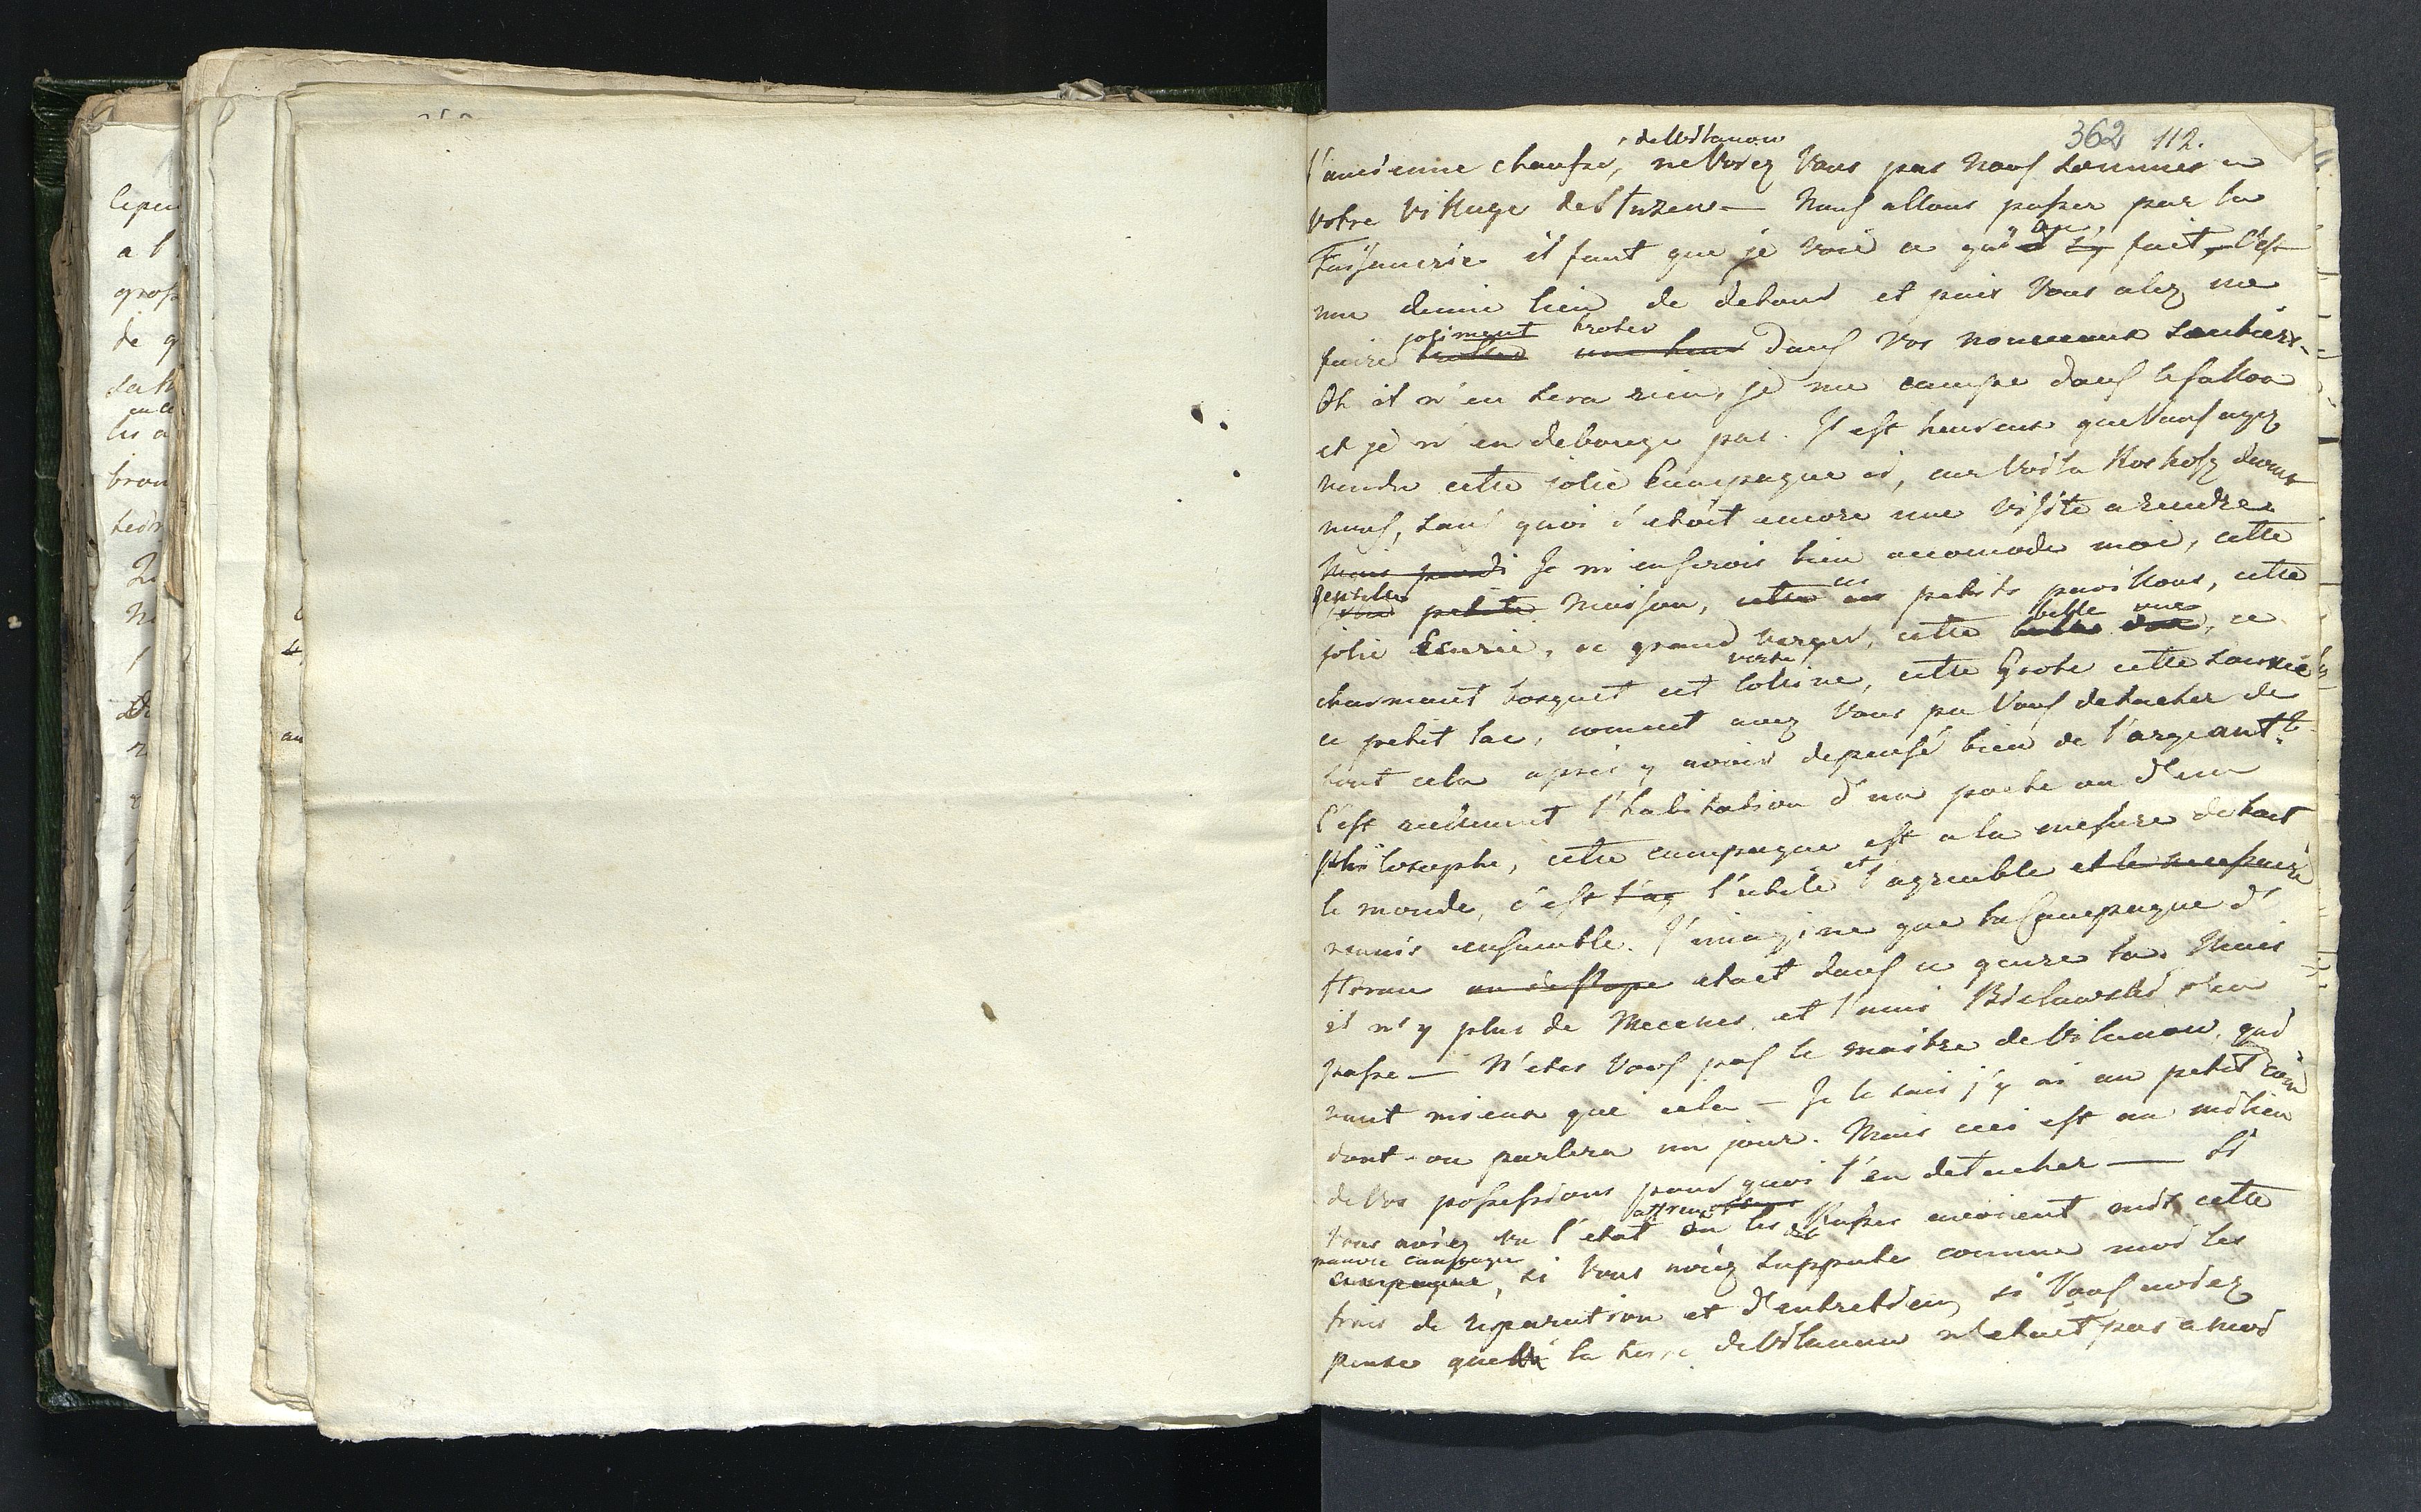 362 112.
de Vilanow
l'ancienne chaussé, ne voiez vous pas nous sommes a
votre village de Sluzew — Nous allons passer par la
Faisanerie il faut que je voie ce qu'on y fait, c'est
une demie lieu de detour et puis vous alez me
joliment troter
faire dans vos nouveaux sentiers.
Oh il n'en sera rien, je me campe dans le sallon
et je n'en debouge pas. Il est heureux que vous ayez
vendu cette jolie Campagne ci, car voila devant
nous, sans quoi c'etoit encore une visite a rendre
Mais pardi Je m'en serois bien accomodé moi, cette
gentille petite Maison, ces petits pavillons, cette
belle vue
jolie Ecurie, ce grand verger, cette ce
verte
charmant bosquet cet coline, cette Grote cette source
ce petit lac, coment avez vous pu vous detacher de
tout cela apres y avoir depensé bien de l'argeant?
C'est reelement l'habitation d'un poete ou d'un
philosophe, cette campagne est a la mesure de tout
le monde, c'est l'ag l'utile et l'agreable et le necessaire
reunis ensemble. J'imagine que la Campagne d'
Horace etoit dans ce genre la. Mais
il n'y plus de Mecenes, et l'ami s'en
passe — N'etes vous pas le maitre de Vilanow, qui
vaut mieux que cela — Je le sais j'y ai un petit coin
dont on parlera un jour. Mais ceci est au milieu
de vos possessions pour quoi s'en detacher — Si
affreux
vous aviez vu l'etat ou les Russes avoient mis cette
pauvre campagne
campagne, si vous aviez supputé comme moi les
frais de reparation et d'entretien, si vous aviez
pensé que la terre de Vilanow n'etoit pas a moi